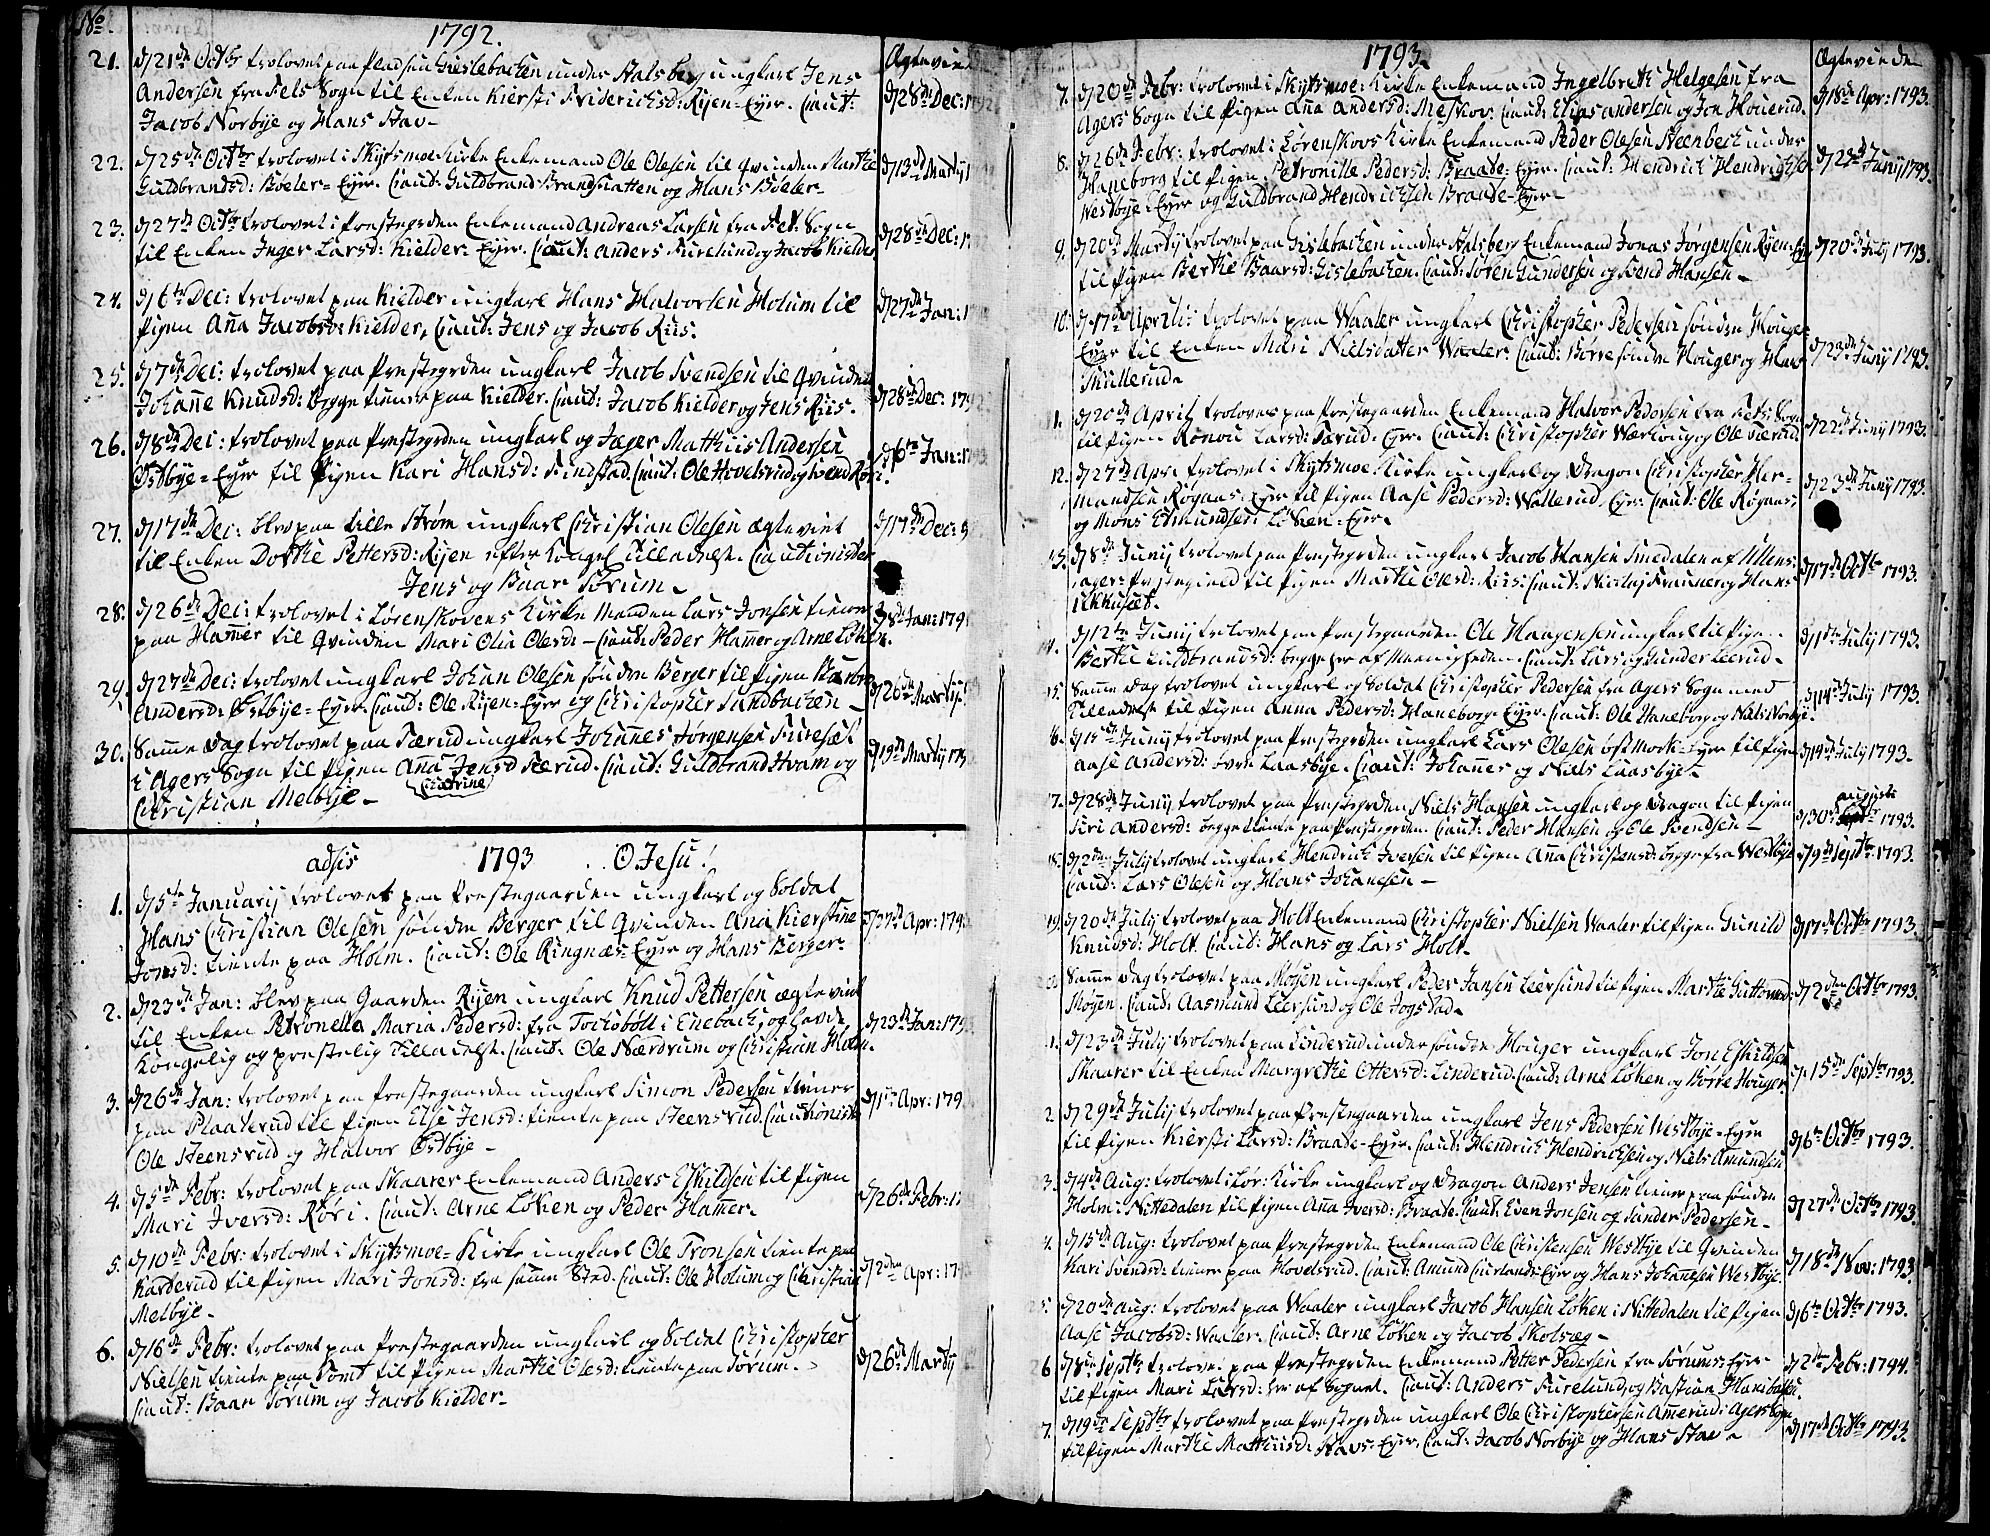 No
1792.
Ægtevie
21. d/21de Octbr trolovet paa Pladsen Gislebachen under Stalsberg ungkarl Jens
Andersen fra Fets Sogn til Enken Kiersti Friderichsd: Ryen=Eyer. Caut:
Jacob Norbye og Hans Stav-
d/28de Dec: 1792
22. d/25de Octbr trolovet i Skytsmoe Kirke Enkemand Ole Olesen til Qvinden Marthe
Guldbrandsd: Bøeler=Eyer. Caut: Guldbrand Brandsnatten og Hans Bøeler-
d/13de Martij 1
23. d/27de Octbr trolovet i Præstegrden Enkemand Andreas Larsen fra Fet Sogn
til Enken Inger Larsd: Kielder=Eyer. Caut: Anders Furelund og Jacob Kielder
d/28de Dec: 1
24. d/6te Dec: trolovet paa Kielder ungkarl Hans Halvorsen Holum til
Pigen Aña Jacobsd: Kielder, Caut: Jens og Jacob Riis.
d/27de Jan: 1
25. d/7de Dec: trolovet paa Præstegrden ungkarl Jacob Svendsen til Qvinden
Johañe Knudsd: begge tiente paa Kielder. Caut: Jacob Kielder og Jens Riis.
d/28de Dec: 179
26. d/8de Dec: trolovet paa Præstegrden ungkarl og Jæger Matthiis Andersen
Østbye=Eyer til Pigen Kari Hansd: Findstad. Caut: Ole Hovelsrud og Svend Røri.
d/6te Jan: 1793
27. d/17de Dec: blev paa Lille Strøm ungkarl Christian Olesen ægteviet
til Enken Dorthe Pettersd: Ryen efter Kongel Tilladelse. Cautionister
Jens og Baar Sørum-
d/17de Dec: 9
28. d/26de Dec: trolovet i Lørenskovens Kirke Manden Lars Jonsen tiener
paa Ham̃er til Qvinden Mari Olia Olesd- Caut: Peder Ham̃er og Arne Løken.
d/8de Jan: 179
29. d/27de Dec: trolovet ungkarl Johan Olesen sønden Berger til Pigen Barbro
Andersd: Østbye=Eyer. Caut: Ole Ryen=Eyer og Christopher Sandbachen-
d/26de Martij
30. Sam̃e Dag trolovet paa Tærud ungkarl Johañes Jørgensen Furesæt
i Agers Sogn til Pigen Aña Jensd Tærud. Caut: Guldbrand Hvam og
Cathrine
Christian Melbye-
d/19de Martij 179
adsis 1793 O Jesu!
1. d/5te Januarij trolovet paa Præstegaarden ungkarl og Soldat
Hans Christian Olesen sønden Berger til Qvinden Aña Kierstine
Jonsd: tiente paa Holm. Caut: Ole Ringnæs=Eyer og Hans Berger-
d/27de Apr: 179
2. d/23de Jan: blev paa Gaarden Ryen ungkarl Knud Pettersen ægteviet
til Enken Petronella Maria Pedersd: fra Tochsbøll i Enebach, og havde
Kongelig og præstelig Tilladelse. Caut: Ole Nærdrum og Christian Holm.
d/23de Jan: 179
3. d/26de Jan: trolovet paa Præstegaarden ungkarl Simon Pedersen tiener
paa Plaaterud til Pigen Else Jensd: tiente paa Steensrud. Cautionister
Ole Steensrud og Halvor Østbye-
d/1ste Apr: 179
4. d/5te Febr: trolovet paa Skaarer Enkemand Anders Eskildsen til Pigen
Mari Iversd: Røri. Caut: Arne Løken og Peder Ham̃er-
d/26de Febr: 17
5. d/10de Febr: trolovet i Skytsmoe=Kirke ungkarl Ole Tronsen tiente paa
Harderud til Pigen Mari Jonsd: fra sam̃e Sted. Caut: Ole Holum og Christian
Melbye-
d/2den Apr: 17
6. d/16de Febr: trolovet paa Præstegaarden ungkarl og Soldat Christopher
Nielsen tiente paa Tomt til Pigen Marthe Olesd: tiente paa Sørum.
Caut: Baar Sørum og Jacob Kielder-
d/26de Martij
1793.
Ægteviede
7. d/20de Febr: trolovet i Skytsmoe=Kirke Enkemand Ingelbreth Helgesen fra
Agers Sogn til Pigen Aña Andersd: Meskov: Caut: Elias Andersen og Jon Houerud.
d/18de Apr: 1793.
8. d/26de Febr: trolovet i Lørenskovs Kirke Enkemand Peder Olesen Steenbech under
Haneborg til Pigen Petronille Pedersd: Braade=Eyer. Caut: Hendrich Hendrichsen
Westbye=Eyer og Guldbrand Hendrichsen Braade-Eyer-
d/29de Junij 1793.
9. d/20de Martij trolovet paa Gislebachen under Stalsberg Enkemand Jonas Jørgensen Ryen=Eyer
til Pigen Berthe Baarsd: Gislebachen. Caut: Søren Gundersen og Svend Hansen-
d/20de July 1793.
10. d/17de Aprilis trolovet paa Waaler ungkarl Christopher Pedersen sønden Houger
Eyer til Enken Mari Nielsdatter Waaler. Caut: Børre sønden Houger og Hans
Skillerud-
d/23de Junij 1793.
11. d/20de April trolovet paa Præstegaarden Enkemand Halvor Pedersen fra Fets Sogn
til Pigen Ronou Larsd: Tærud=Eyer. Caut: Christopher Wærhoug og Ole Tærud
d/22de Junij 1793.
12. d/27de Apri trolovet i Skytsmoe=Kirke ungkarl og Dragon Christopher Her-
mandsen Røgaas=Eyer til Pigen Aase Pedersd: Wallerud=Eyer: Caut: Ole Røgaas,
og Mons Edmundsen Løken=Eyer-
d/23de Junij 1793.
13. d/8de Junij trolovet paa Præstegrden ungkarl Jacob Hansen Smedalen af Ullens-
agers Præstegield til Pigen Marthe Olesd: Riis: Caut: Nicolaj Frauner og Hans
Ukkusæt.
d/17de Octbr 1793.
14. d/12te Junij trolovet paa Præstegaarden Ole Haagensen ungkarl til Pigen
Berthe Guldbrandsd: begge her af Meenigheden. Caut: Lars og Gunder Leerud-
d/1ste July 1793.
15. Sam̃e Dag trolovet ungkarl og Soldat Christopher Pedersen fra Agers Sogn med
Tilladelse til Pigen Anna Pedersd: Haneborg=Eyer. Caut: Ole Haneborg og Niels Norbye.
d/14de July 1793.
16. d/15de Junij trolovet paa Præstegrden ungkarl Lars Olesen østMork=Eyer til Pigen
Aase Andersd: Laasbye. Caut: Johañes og Niels Laasbye-
d/19de July 1793.
17. d/28de Junij trolovet paa Præstegrden Niels Hansen ungkarl og Dragon til Pigen
Siri Andersd: begge tiente paa Præstegrden. Caut: Peder Hansen og Ole Svendsen-
augusti
d/30de 1793.
18. d/2den July trolovet ungkarl Hendrich Iversen til Pigen Aña Christensd: begge fra Westbye
Caut: Lars Olesen og Hans Johañesen-
d/9de Septbr 1793.
19. d/20de July trolovet paa Holt Enkemand Christopher Nielsen Waaler til Pigen Gunild
Knudsd: Holt. Caut: Hans og Lars Holt-
d/17de Octbr 1793.
20. Sam̃e Dag trolovet paa Mojen ungkarl Peder Jansen Leersund til Pigen Marthe Guttormsd:
Mojen. Caut: Aasmund Leersund og Ole Jogstad-
d/2den Octbr 1793.
1. d/23de July trolovet paa Linderud under sønden Houger ungkarl Jon Eskildsen
Skaarer til Enken Margrethe Ottersd: Linderud. Caut: Arne Løken og Børre Houger.
d/15de Septbr 1793.
2. d/29de July trolovet paa Præstegaarden ungkarl Jens Pedersen Westbye=Eyer
til Pigen Kiersti Larsd: Braade-Eyer. Caut: Hendrich Hendrichsen og Niels Amundsen
d/6te Octbr 1793.
3. d/4de Aug: trolovet i Lør: Kirke ungkarl og Dragon Anders Jensen tiener paa sønden
Holm i Nittedalen til Pigen Aña Iversd: Braate. Caut: Even Jonsen og Sander Pedersen-
d/27de Octbr 1793.
4. d/15de Aug: trolovet paa Præstegrden Enkemand Ole Christensen Westbye til Qvinden
Kari Svendsd: tiener paa Hovelsrud. Caut: Amund Eyer og Hans Johañesen Westbye.
d/18de Nov: 1793.
25. d/20de Aug: trolovet paa Waaler ungkarl Jacob Hansen Løken i Nittedalen til Pigen
Aase Jacobsd: Waaler. Caut: Arne Løken og Jacob Skolsæg-
d/6te Octbr 1793.
26 d/8de Septbr: trolovet paa Præstegrden Enkemand Petter Pedersen fra Sørums=Eyer-
til Pigen Mari Larsd: her af Sognet. Caut: Anders Furelund, og Bastian Hanebohu.
d/2den Febr: 1794.
7. d/19de Septbr trolovet paa Præstegrden ungkarl Ole Christophersen Am̃erud i Agers Sogn
til Pigen Marthe Matthisd: Stavs=Eyer, Caut: Jacob Norbye og Hans Stav-
d/17de Octbr 1793.